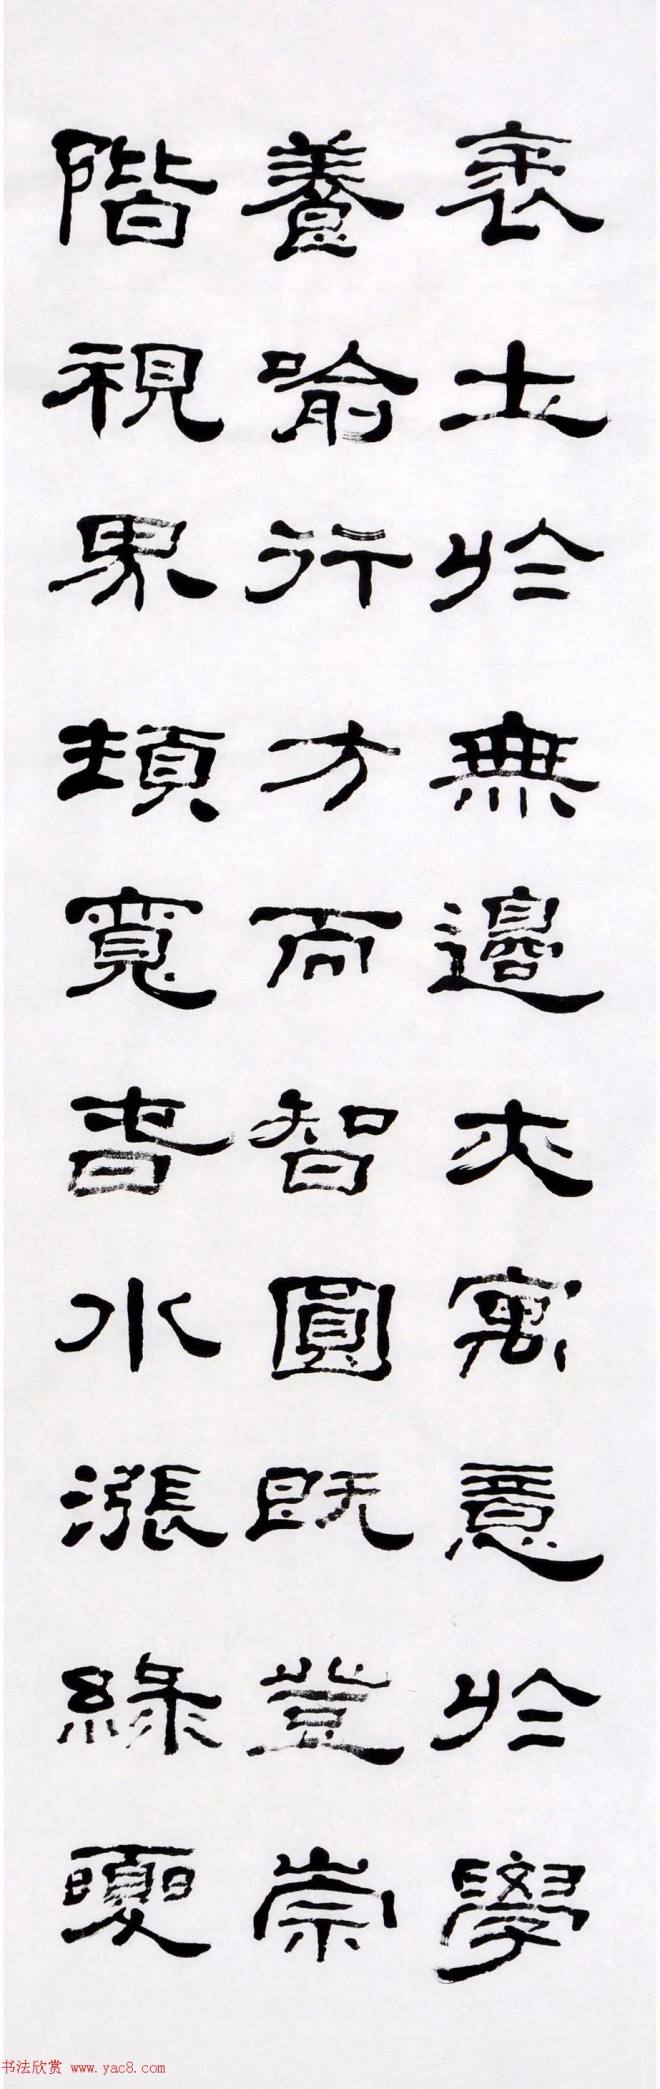 袤土於無邊夫寓意於學
養喻行方而智圓既豋崇
階視界頓寬春水漲綠夏
书法欣赏 www.yac8.com